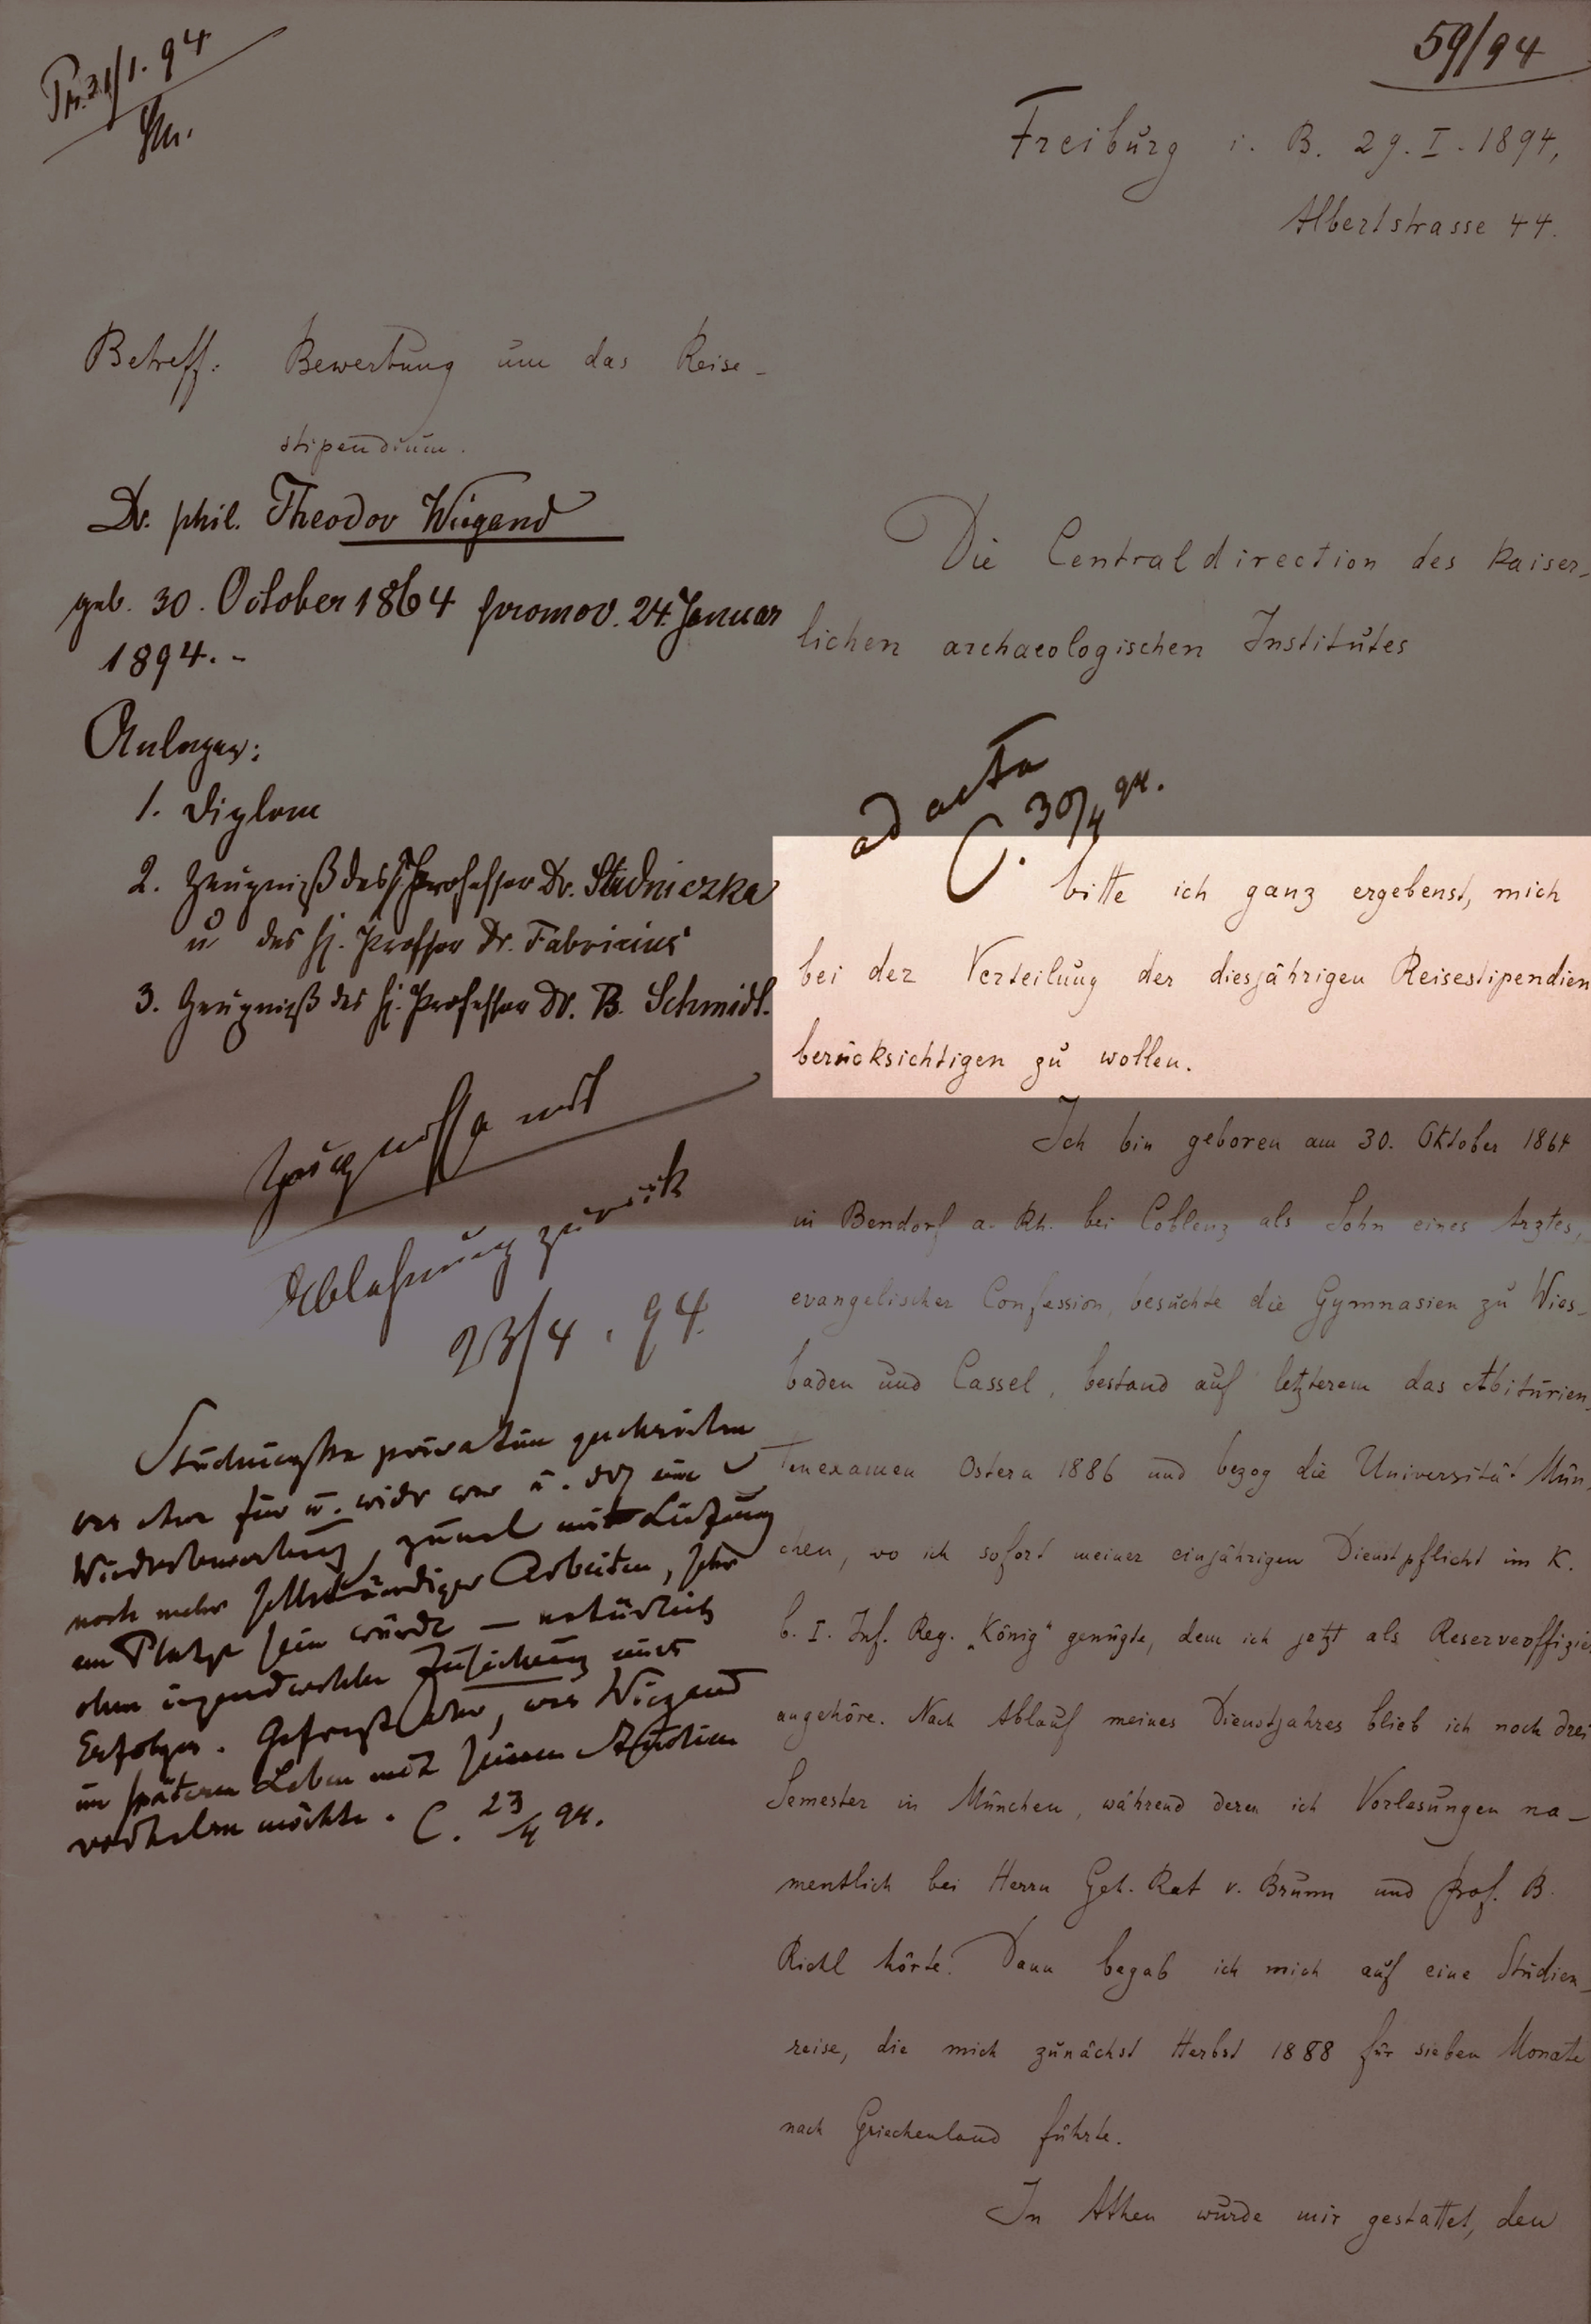 Pr. 31/1. 94
59/94
Freiburg i. B. 29. I. 1894,
Albertstrasse 44.
Betreff: Bewerbung um das Reise-
stipendium.
Dr. phil. Theodor Wiegand
geb. 30. October 1864 promov. 24. Januar
1894. -
Anlagen:
1. Diplom
2. Zeugniß des H. Professor Dr. Studniczka
u des H. Professor Dr. Fabricius
3. Zeugniß des H. Professor Dr. B. Schmidt.
Zeugnisse mit
Ablehnung zurück
23/4. 94.
Studniczka privatim geschrieben
was für u. wider war u. daß eine
Wiederbewerbung, zumal mit
noch mehr selbständiger Arbeiten, sehr
am Platze sein würde — natürlich
ohne irgendwelche Zusicherung eines
Erfolges. Gefragt aber, was Wiegand
im späteren Leben mit seinen Studien
möchte. C. 23/4 94.
Die Centraldirection des kaiser-
lichen archaeologischen Institutes
ad acta
C. 30/4 94.
bitte ich ganz ergebenst, mich
bei der Verteilung der diesjährigen Reisestipendien
berücksichtigen zu wollen.
Ich bin geboren am 30. Oktober 1864
in Bendorf a. Rh. bei Coblenz als Sohn eines Arztes,
evangelischer Confession, besuchte die Gymnasien zu Wies-
baden und Cassel, bestand auf letzterem das Abiturien-
tenexamen Ostern 1886 und bezog die Universität Mün-
chen, wo ich sofort meiner einjährigen Dienstpflicht im K.
b. I. Inf. Reg. „König" genügte, dem ich jetzt als Reserveoffizier
angehöre. Nach Ablauf meines Dienstjahres blieb ich noch drei
Semester in München, während deren ich Vorlesungen na-
mentlich bei Herrn Geh. Rat v. Brunn und Prof. B.
Riehl hörte. Dann begab ich mich auf eine Studien-
reise, die mich zunächst Herbst 1888 für sieben Monate
nach Griechenland führte.
In Athen wurde mir gestattet, den